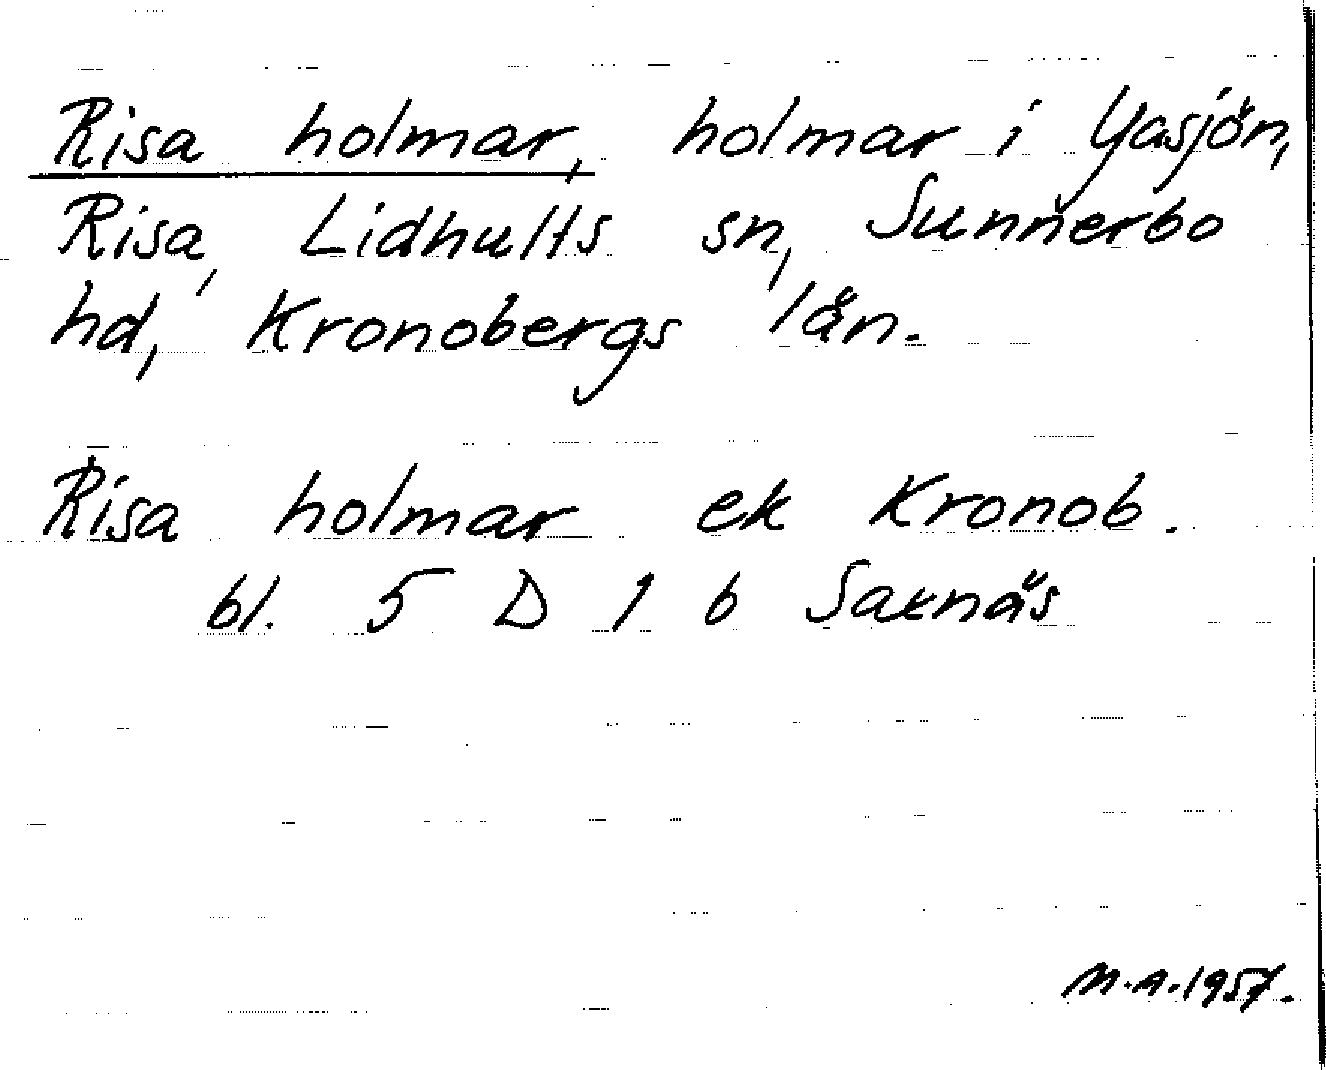 Risa holmar, holmar i Yasjön,
Risa, Lidhults sn, Sunnerbo
hd, Kronobergs län.
Risa holmar ek Kronob.
bl. 5 D 1 b Saxnäs
M.A.1957.